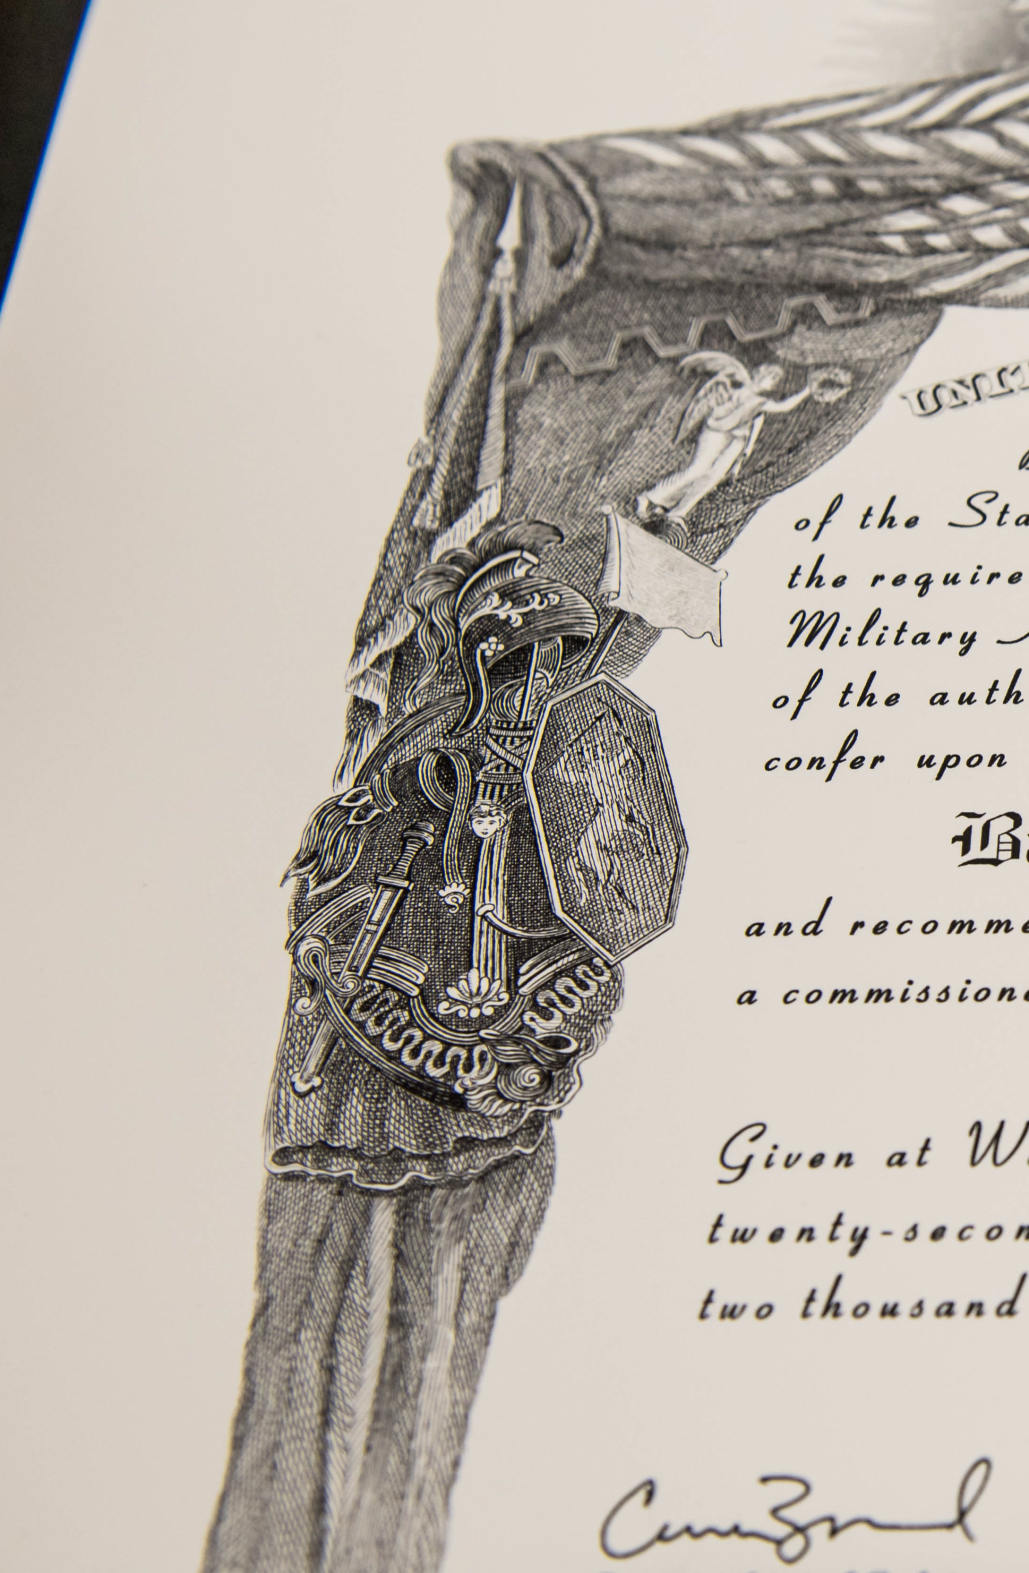 UNIT
of the Sta
the require
Military
of the auth
confer upon
B
and recomme
a commission
Given at W
twenty-secon
two thousand